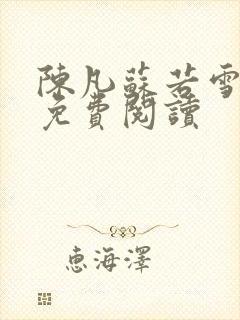 陳凡蘇若雪
免費閱讀
惠海澤